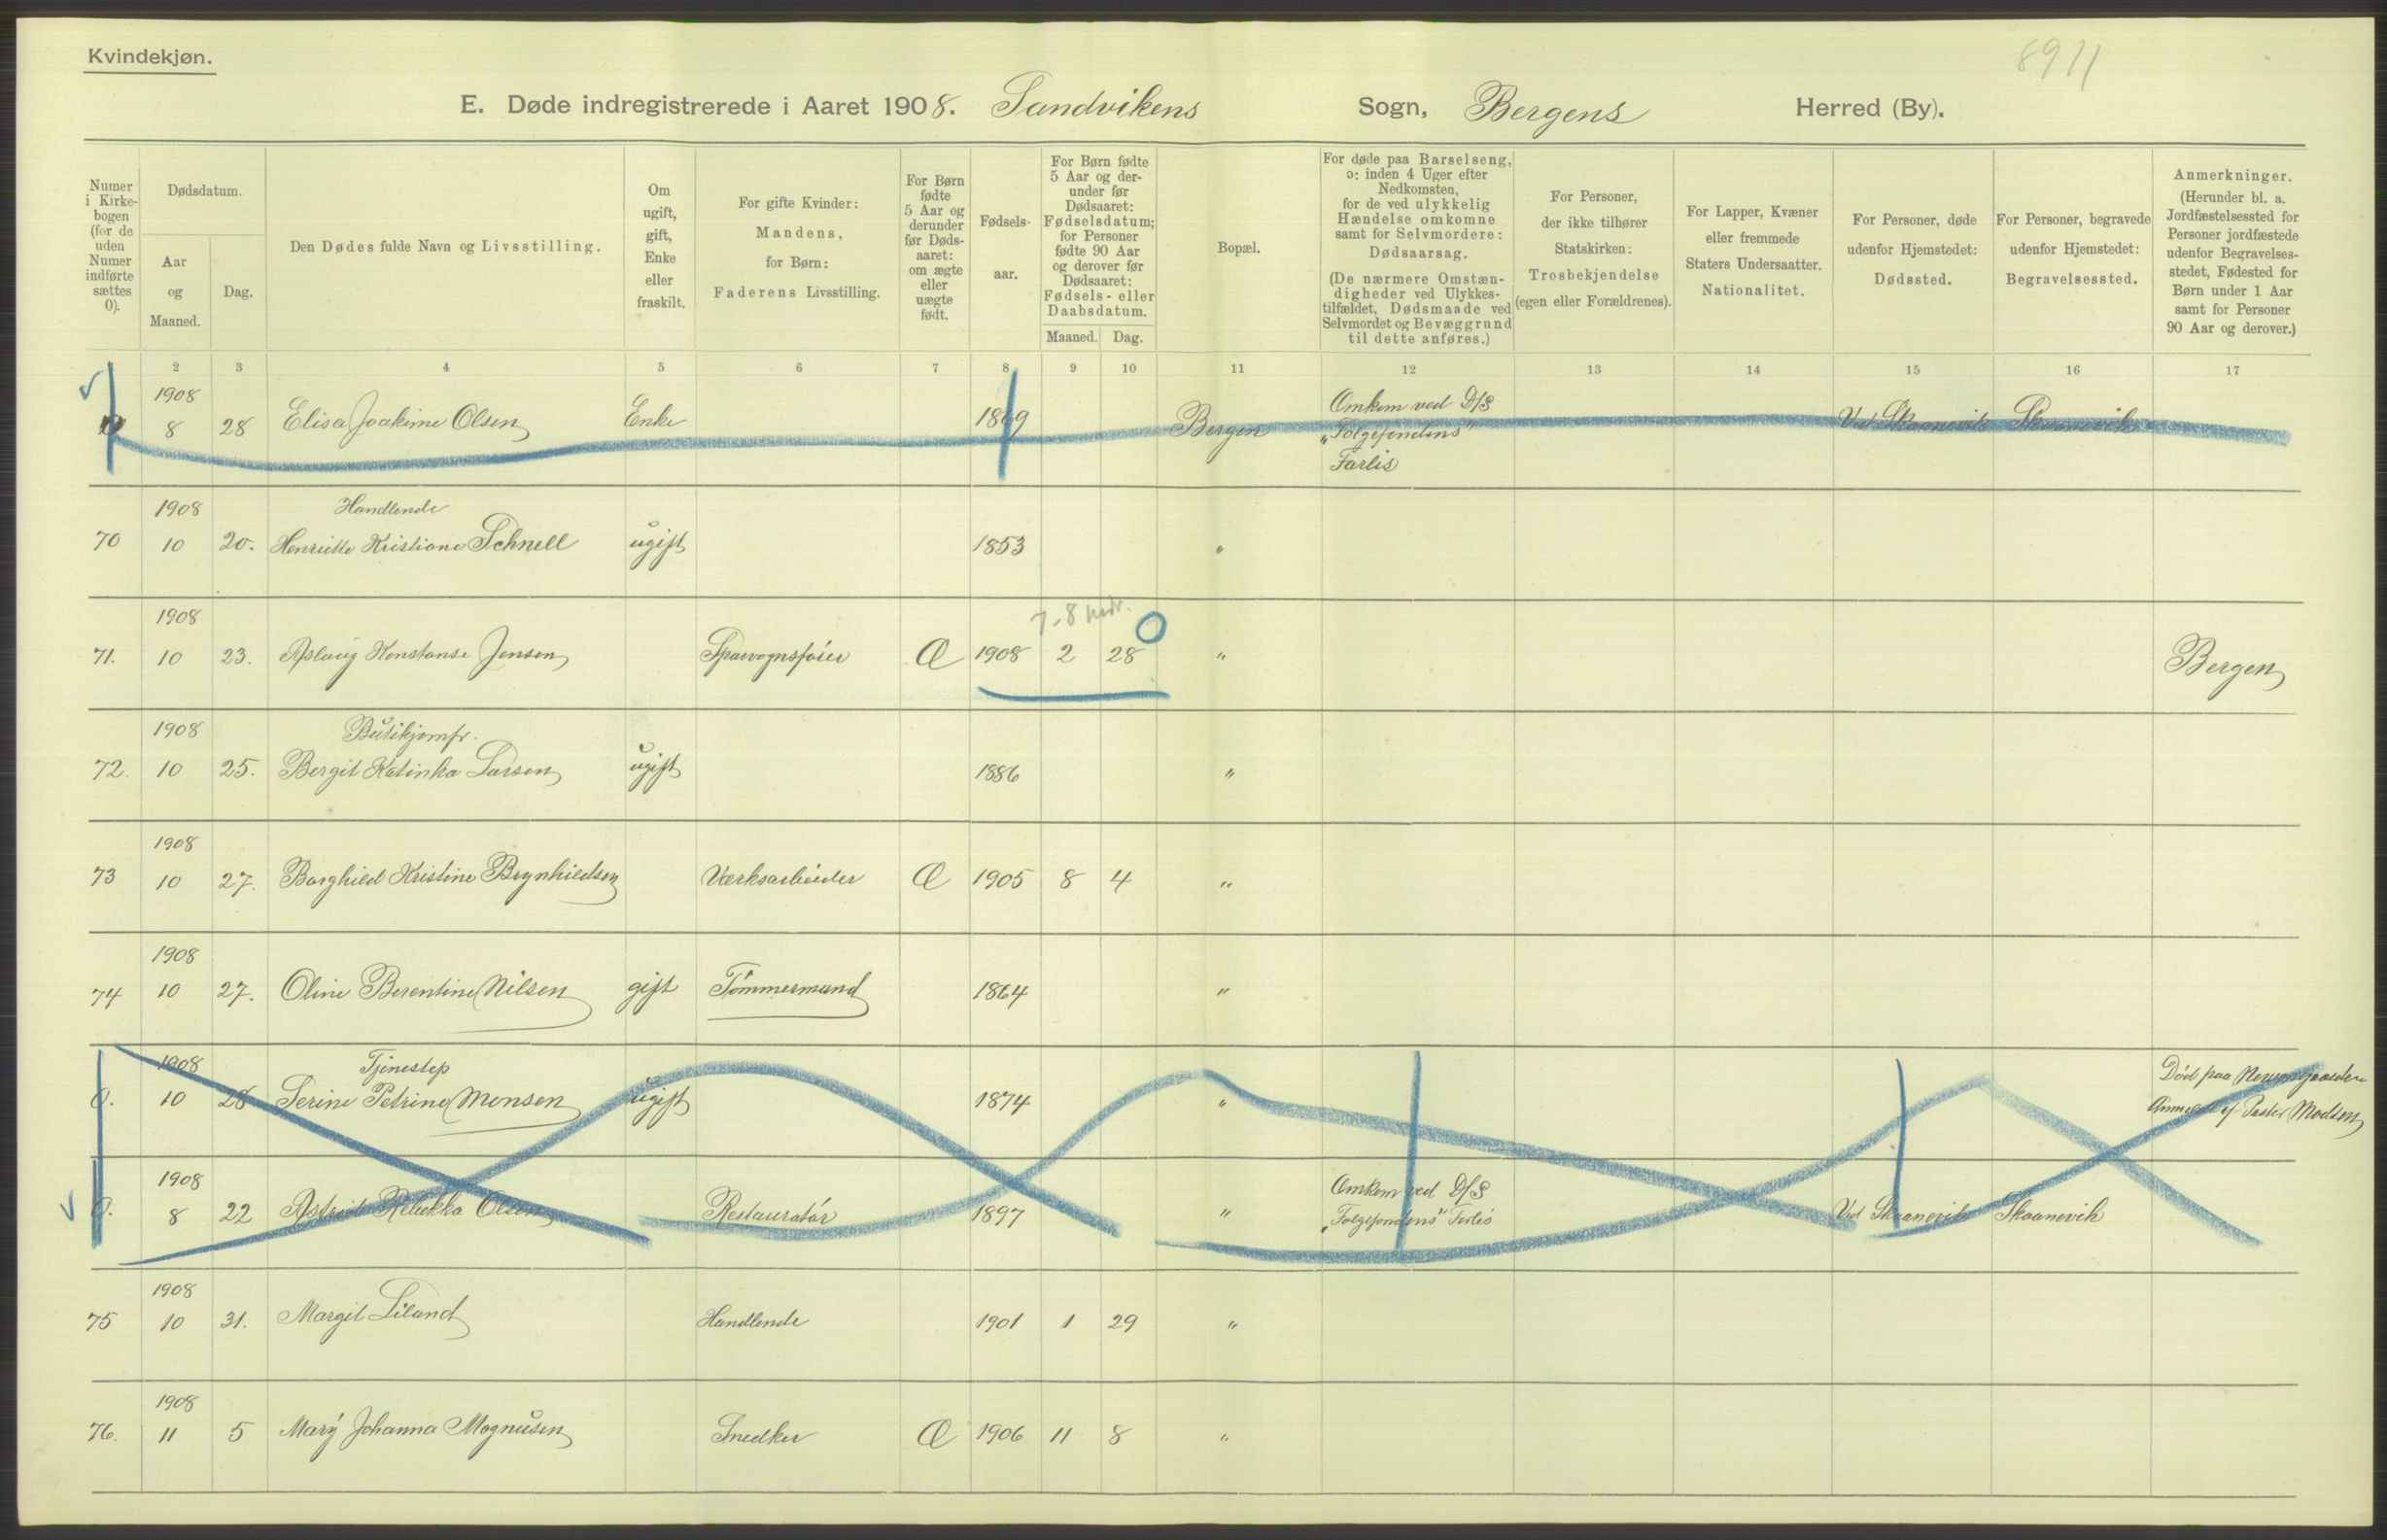 Kvindekjøn.
8911
E. Døde indregistrerede i Aaret 1908. Sandvikens Sogn, Bergens Herred (By).
Numer i Kirkebogen (for de uden Numer indførte sættes 0).
Dødsdatum.
Aar og Maaned.
Dag.
Den Dødes fulde Navn og Livsstilling.
Om ugift, gift, Enke eller fraskilt.
For gifte Kvinder: Mandens, for Børn: Faderens Livsstilling.
For Børn fødte 5 Aar og derunder før Dødsaaret: om ægte eller uægte født.
Fødselsaar.
For Børn fødte 5 Aar og derunder før Dødsaaret: Fødselsdatum; for Personer fødte 90 Aar og derover før Dødsaaret: Fødsels- eller Daabsdatum.
Maaned. Dag.
Bopæl.
For døde paa Barselseng, ɔ: inden 4 Uger efter Nedkomsten, for de ved ulykkelig Hændelse omkomne samt for Selvmordere: Dødsaarsag.
(De nærmere Omstændigheder ved Ulykkestilfældet, Dødsmaade ved Selvmordet og Bevæggrund til dette anføres.)
For Personer, der ikke tilhører Statskirken: Trosbekjendelse (egen eller Forældrenes).
For Lapper, Kvæner eller fremmede Staters Undersaatter. Nationalitet.
For Personer, døde udenfor Hjemstedet: Dødssted.
For Personer, begravede udenfor Hjemstedet: Begravelsessted.
Anmerkninger.
(Herunder bl. a. Jordfæstelsessted for Personer jordfæstede udenfor Begravelsesstedet, Fødested for Børn under 1 Aar samt for Personer 90 Aar og derover.)
2 3 4 5 6 7 8 9 10 11 12 13 14 15 16 17
1908 Omkom ved D/S
8 28 Elisa Joakime Olsen Enke 1869 Bergen "Folgefondens" Ved Skaanevik Skaanevik
Forlis
1908 Handlende
70 10 20. Henriette Kristiane Schnell ugift 1853 "
1908 7-8 mdr.
71. 10 23. Aslaug Konstanse Jensen Sporvognsfører Æ 1908 2 28 " Bergen
1908 Butikjomfr.
72. 10 25. Bergit Katinka Larsen ugift 1886 "
1908
73 10 27. Borghild Kristine Brynhildsen Værksarbeider Æ 1905 8 4 "
1908
74 10 27. Oline Berentine Nilsen gift Tömmermand 1864 "
1908 Tjenestep Död paa
0. 10 28 Serine Petrine Monsen ugift 1874 " Anmeldt af Pastor Madsen
1908 Omkom ved D/S
0. 8 22 Astrid Rebekka Olsen Restauratör 1897 " "Folgefondens" Forlis Ved Skaanevik Skaanevik
1908
75 10 31. Margit Liland Handlende 1901 1 29 "
1908
76. 11 5 Mary Johanna Magnusen Snedker Æ 1906 11 8 "